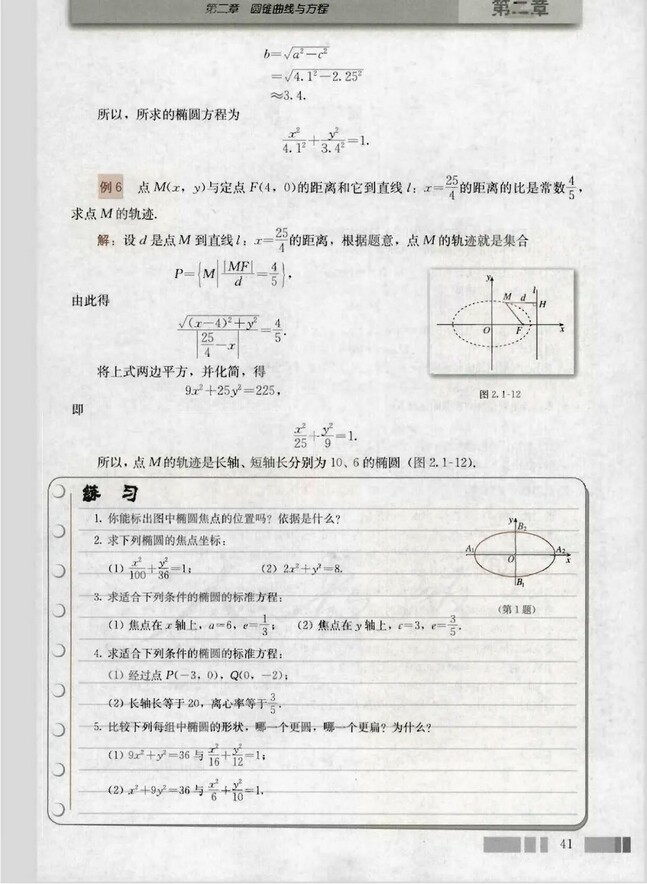 第二章 圆锥曲线与方程
第二章
b=√(a²-c²)
=√(4.1²-2.25²)
≈3.4.
所以，所求的椭圆方程为
x²/4.1²+y²/3.4²=1.
例6 点 M(x，y)与定点 F(4，0)的距离和它到直线 l：x=25/4的距离的比是常数4/5，
求点 M 的轨迹.
解：设 d 是点 M 到直线 l：x=25/4的距离，根据题意，点 M 的轨迹就是集合
P={M| |MF|/d=4/5}，
由此得
√((x-4)²+y²)/|25/4-x|=4/5.
将上式两边平方，并化简，得
9x²+25y²=225，
即
x²/25+y²/9=1.
所以，点 M 的轨迹是长轴、短轴长分别为 10、6 的椭圆（图 2.1-12）.
y
l
M d H
O F x
图 2.1-12
练 习
1. 你能标出图中椭圆焦点的位置吗？依据是什么？
2. 求下列椭圆的焦点坐标：
(1) x²/100+y²/36=1； (2) 2x²+y²=8.
3. 求适合下列条件的椭圆的标准方程：
(1) 焦点在 x 轴上，a=6，e=1/3； (2) 焦点在 y 轴上，c=3，e=3/5.
4. 求适合下列条件的椭圆的标准方程：
(1) 经过点 P(-3，0)，Q(0，-2)；
(2) 长轴长等于 20，离心率等于3/5.
5. 比较下列每组中椭圆的形状，哪一个更圆，哪一个更扁？为什么？
(1) 9x²+y²=36 与 x²/16+y²/12=1；
(2) x²+9y²=36 与 x²/6+y²/10=1.
y B₂
A₁ O A₂ x
B₁
（第 1 题）
41